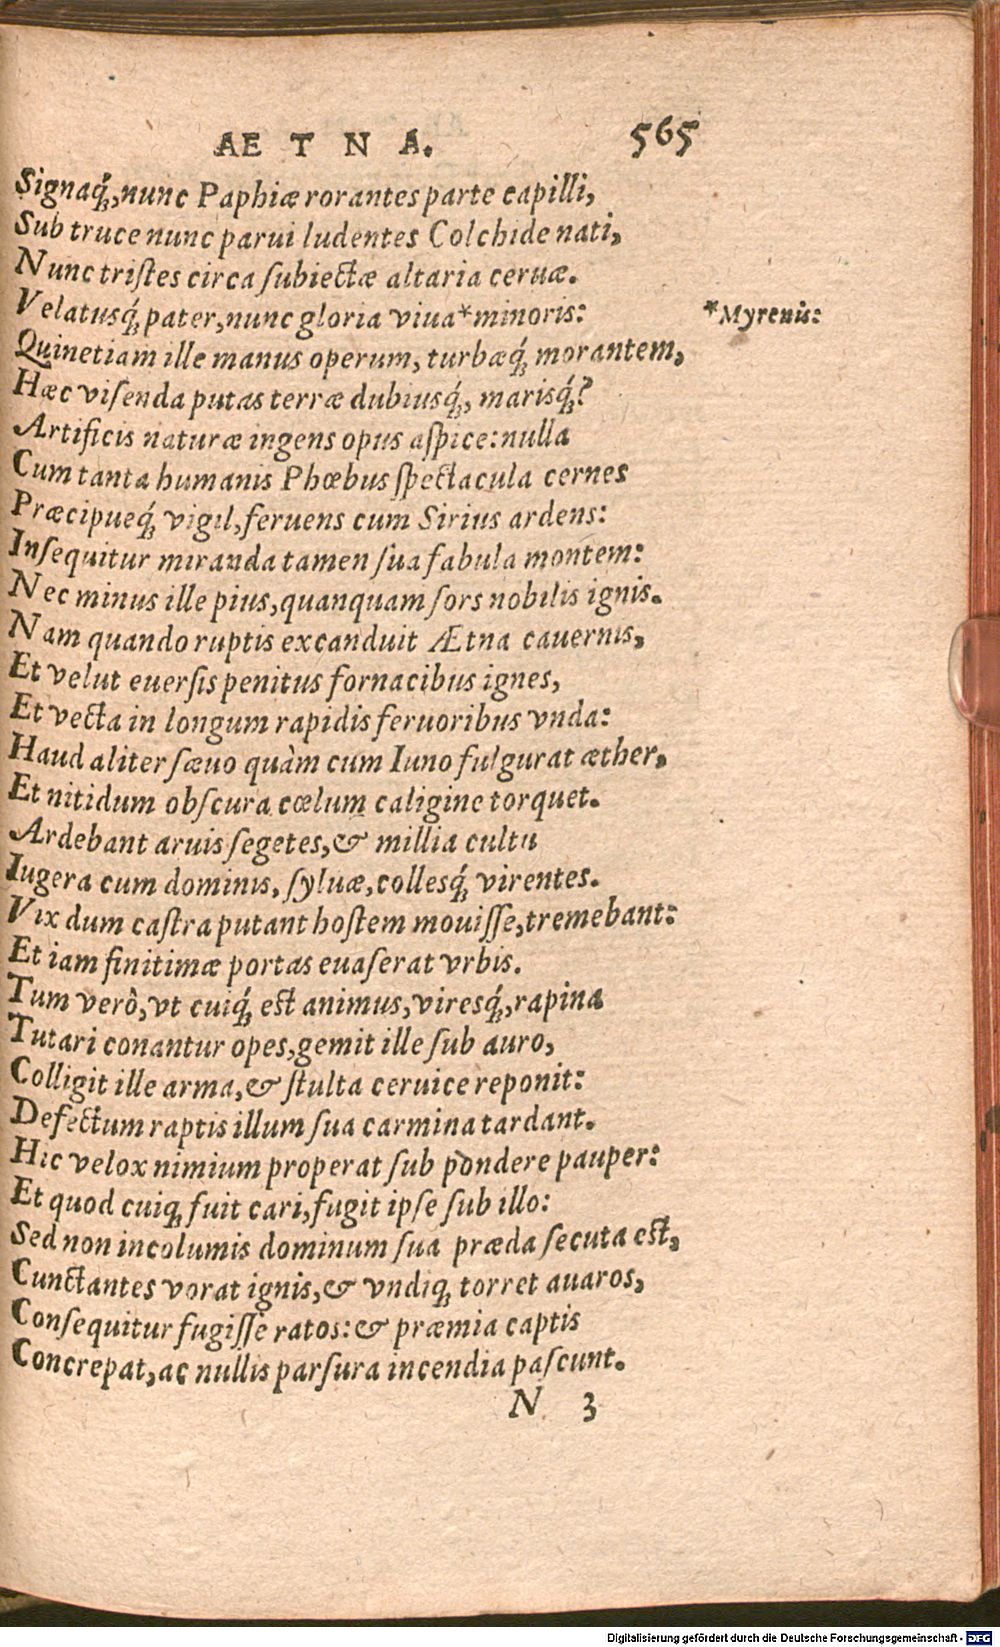 AETNA. 565
Signaq́;,nunc Paphiæ rorantes parte capilli,
Sub truce nunc parui ludentes Colchide nati,
Nunc tristes circa subiectæ altaria ceruæ.
Velatusq́;,pater,nunc gloria viua*minoris: *Myrenis:
Quinetiam ille manus operum, turbæq́; morantem,
Hæc visenda putas terræ dubiusq́;, marisq́;?
Artificis naturæ ingens opus aspice:nulla
Cum tanta humanis Phœbus spectacula cernes
Præcipueq́; vigil,feruens cum Sirius ardens:
Insequitur miranda tamen sua fabula montem:
Nec minus ille pius,quanquam sors nobilis ignis.
Nam quando ruptis excanduit Ætna cauernis,
Et velut euersis penitus fornacibus ignes,
Et vecta in longum rapidis feruoribus vnda:
Haud aliter sæuo quàm cum Iuno fulgurat æther,
Et nitidum obscura cœlum caligine torquet.
Ardebant aruis segetes,& millia cultu
Iugera cum dominis, syluæ,collesq́; virentes.
Vix dum castra putant hostem mouisse,tremebant:
Et iam finitimæ portas euaserat vrbis.
Tum verò,vt cuiq́; est animus,viresq́;,rapina
Tutari conantur opes,gemit ille sub auro,
Colligit ille arma,& stulta ceruice reponit:
Defectum raptis illum sua carmina tardant.
Hic velox nimium properat sub pondere pauper:
Et quod cuiq; fuit cari,fugit ipse sub illo:
Sed non incolumis dominum sua præda secuta est,
Cunctantes vorat ignis,& vndiq; torret auaros,
Consequitur fugisse ratos:& præmia captis
Concrepat,ac nullis parsura incendia pascunt.
N 3
Digitalisierung gefördert durch die Deutsche Forschungsgemeinschaft - DFG